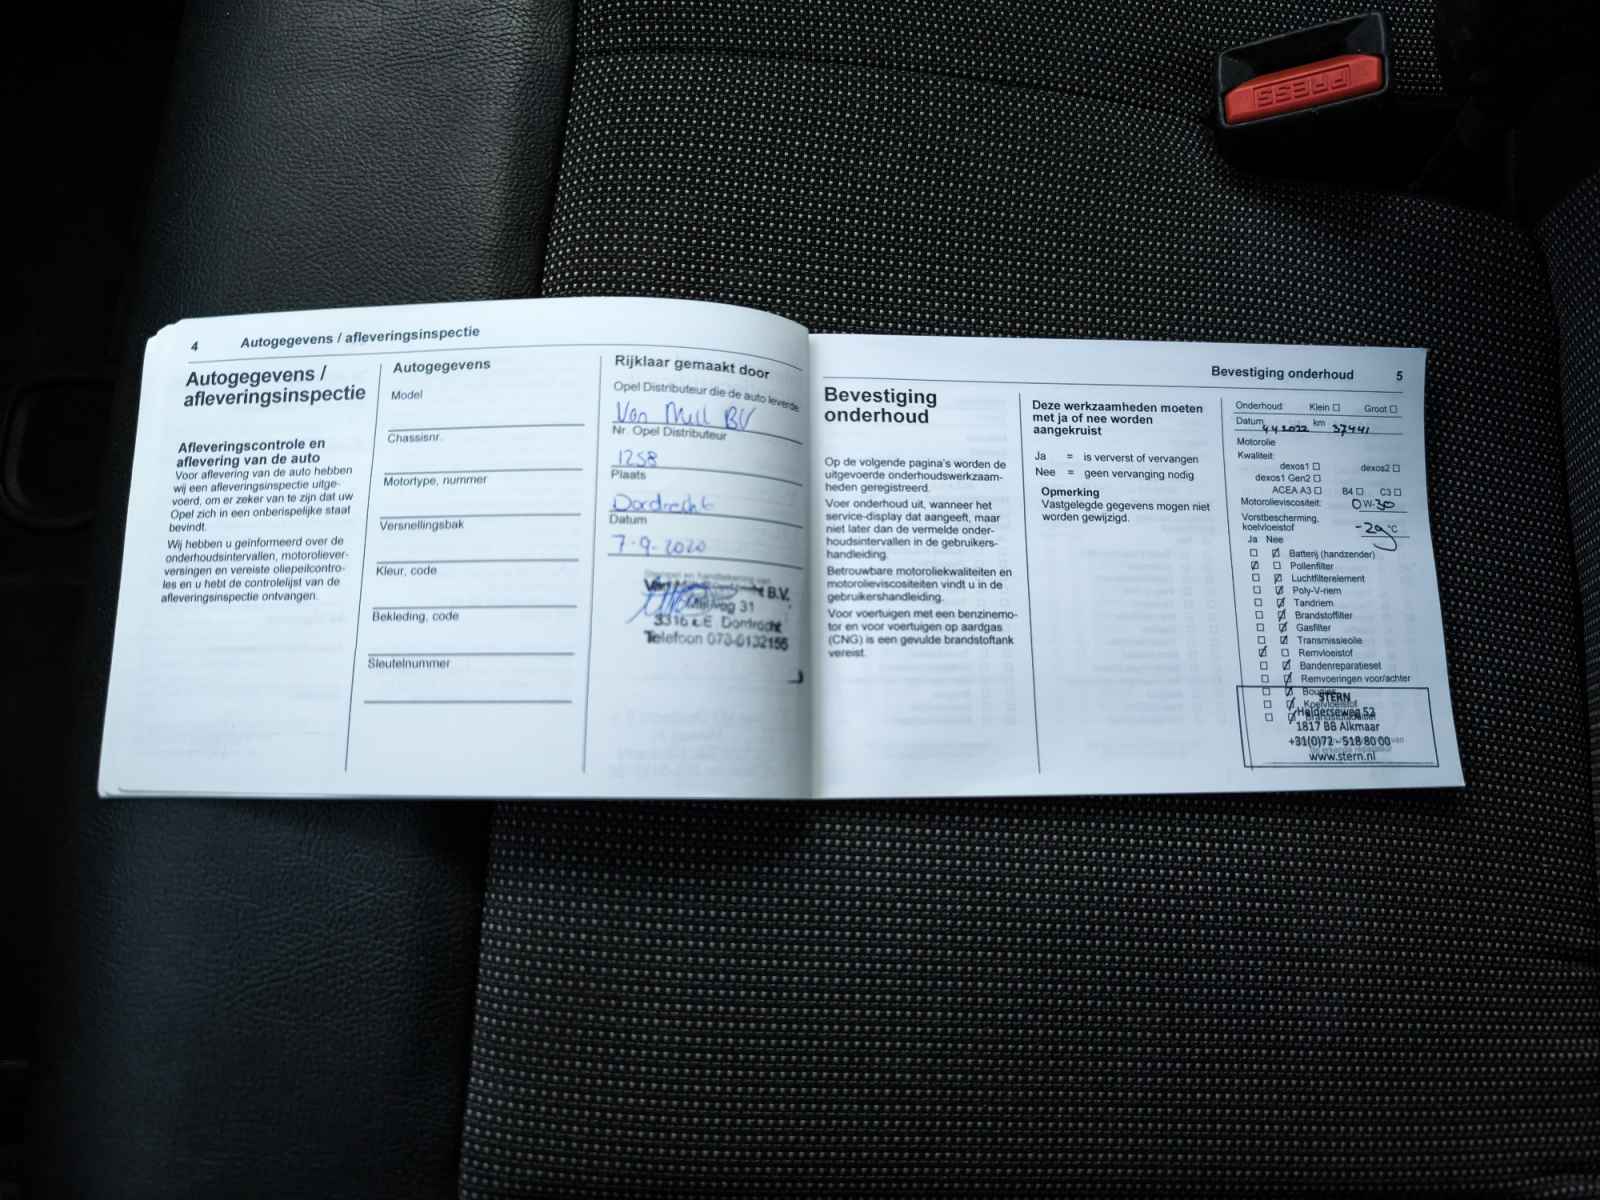 PRESS
4 Autogegevens / afleveringsinspectie
Autogegevens /
afleveringsinspectie
Afleveringscontrole en
aflevering van de auto
Voor aflevering van de auto hebben
wij een afleveringsinspectie uitge-
voerd, om er zeker van te zijn dat uw
Opel zich in een onberispelijke staat
bevindt.
Wij hebben u geïnformeerd over de
onderhoudsintervallen, motoroliever-
versingen en vereiste oliepeilcontro-
les en u hebt de controlelijst van de
afleveringsinspectie ontvangen.
Autogegevens
Model
Chassisnr.
Motortype, nummer
Versnellingsbak
Kleur, code
Bekleding, code
Sleutelnummer
Rijklaar gemaakt door
Opel Distributeur die de auto leverde
Van Mill BV
Nr. Opel Distributeur
1258
Plaats
Dordrecht
Datum
7-9-2020
B.V.
31
Dordrecht
Telefoon
Bevestiging onderhoud 5
Bevestiging
onderhoud
Op de volgende pagina's worden de
uitgevoerde onderhoudswerkzaam-
heden geregistreerd.
Voer onderhoud uit, wanneer het
service-display dat aangeeft, maar
niet later dan de vermelde onder-
houdsintervallen in de gebruikers-
handleiding.
Betrouwbare motoroliekwaliteiten en
motorolieviscositeiten vindt u in de
gebruikershandleiding.
Voor voertuigen met een benzinemo-
tor en voor voertuigen op aardgas
(CNG) is een gevulde brandstoftank
vereist.
Deze werkzaamheden moeten
met ja of nee worden
aangekruist
Ja = is ververst of vervangen
Nee = geen vervanging nodig
Opmerking
Vastgelegde gegevens mogen niet
worden gewijzigd.
Onderhoud: Klein Groot
Datum 4.4.2022 km 37441
Motorolie
Kwaliteit:
dexos1 dexos2
dexos1 Gen2
ACEA A3 B4 C3
Motorolieviscositeit: 0W-30
Vorstbescherming,
koelvloeistof -29 °C
Ja Nee
Batterij (handzender)
Pollenfilter
Luchtfilterelement
Poly-V-riem
Tandriem
Brandstoffilter
Gasfilter
Transmissieolie
Remvloeistof
Bandenreparatieset
Remvoeringen voor/achter
Bougies
Koelvloeistof
STERN
Helderseweg 52
1817 BB Alkmaar
+31(0)72 - 518 80 00
www.stern.nl